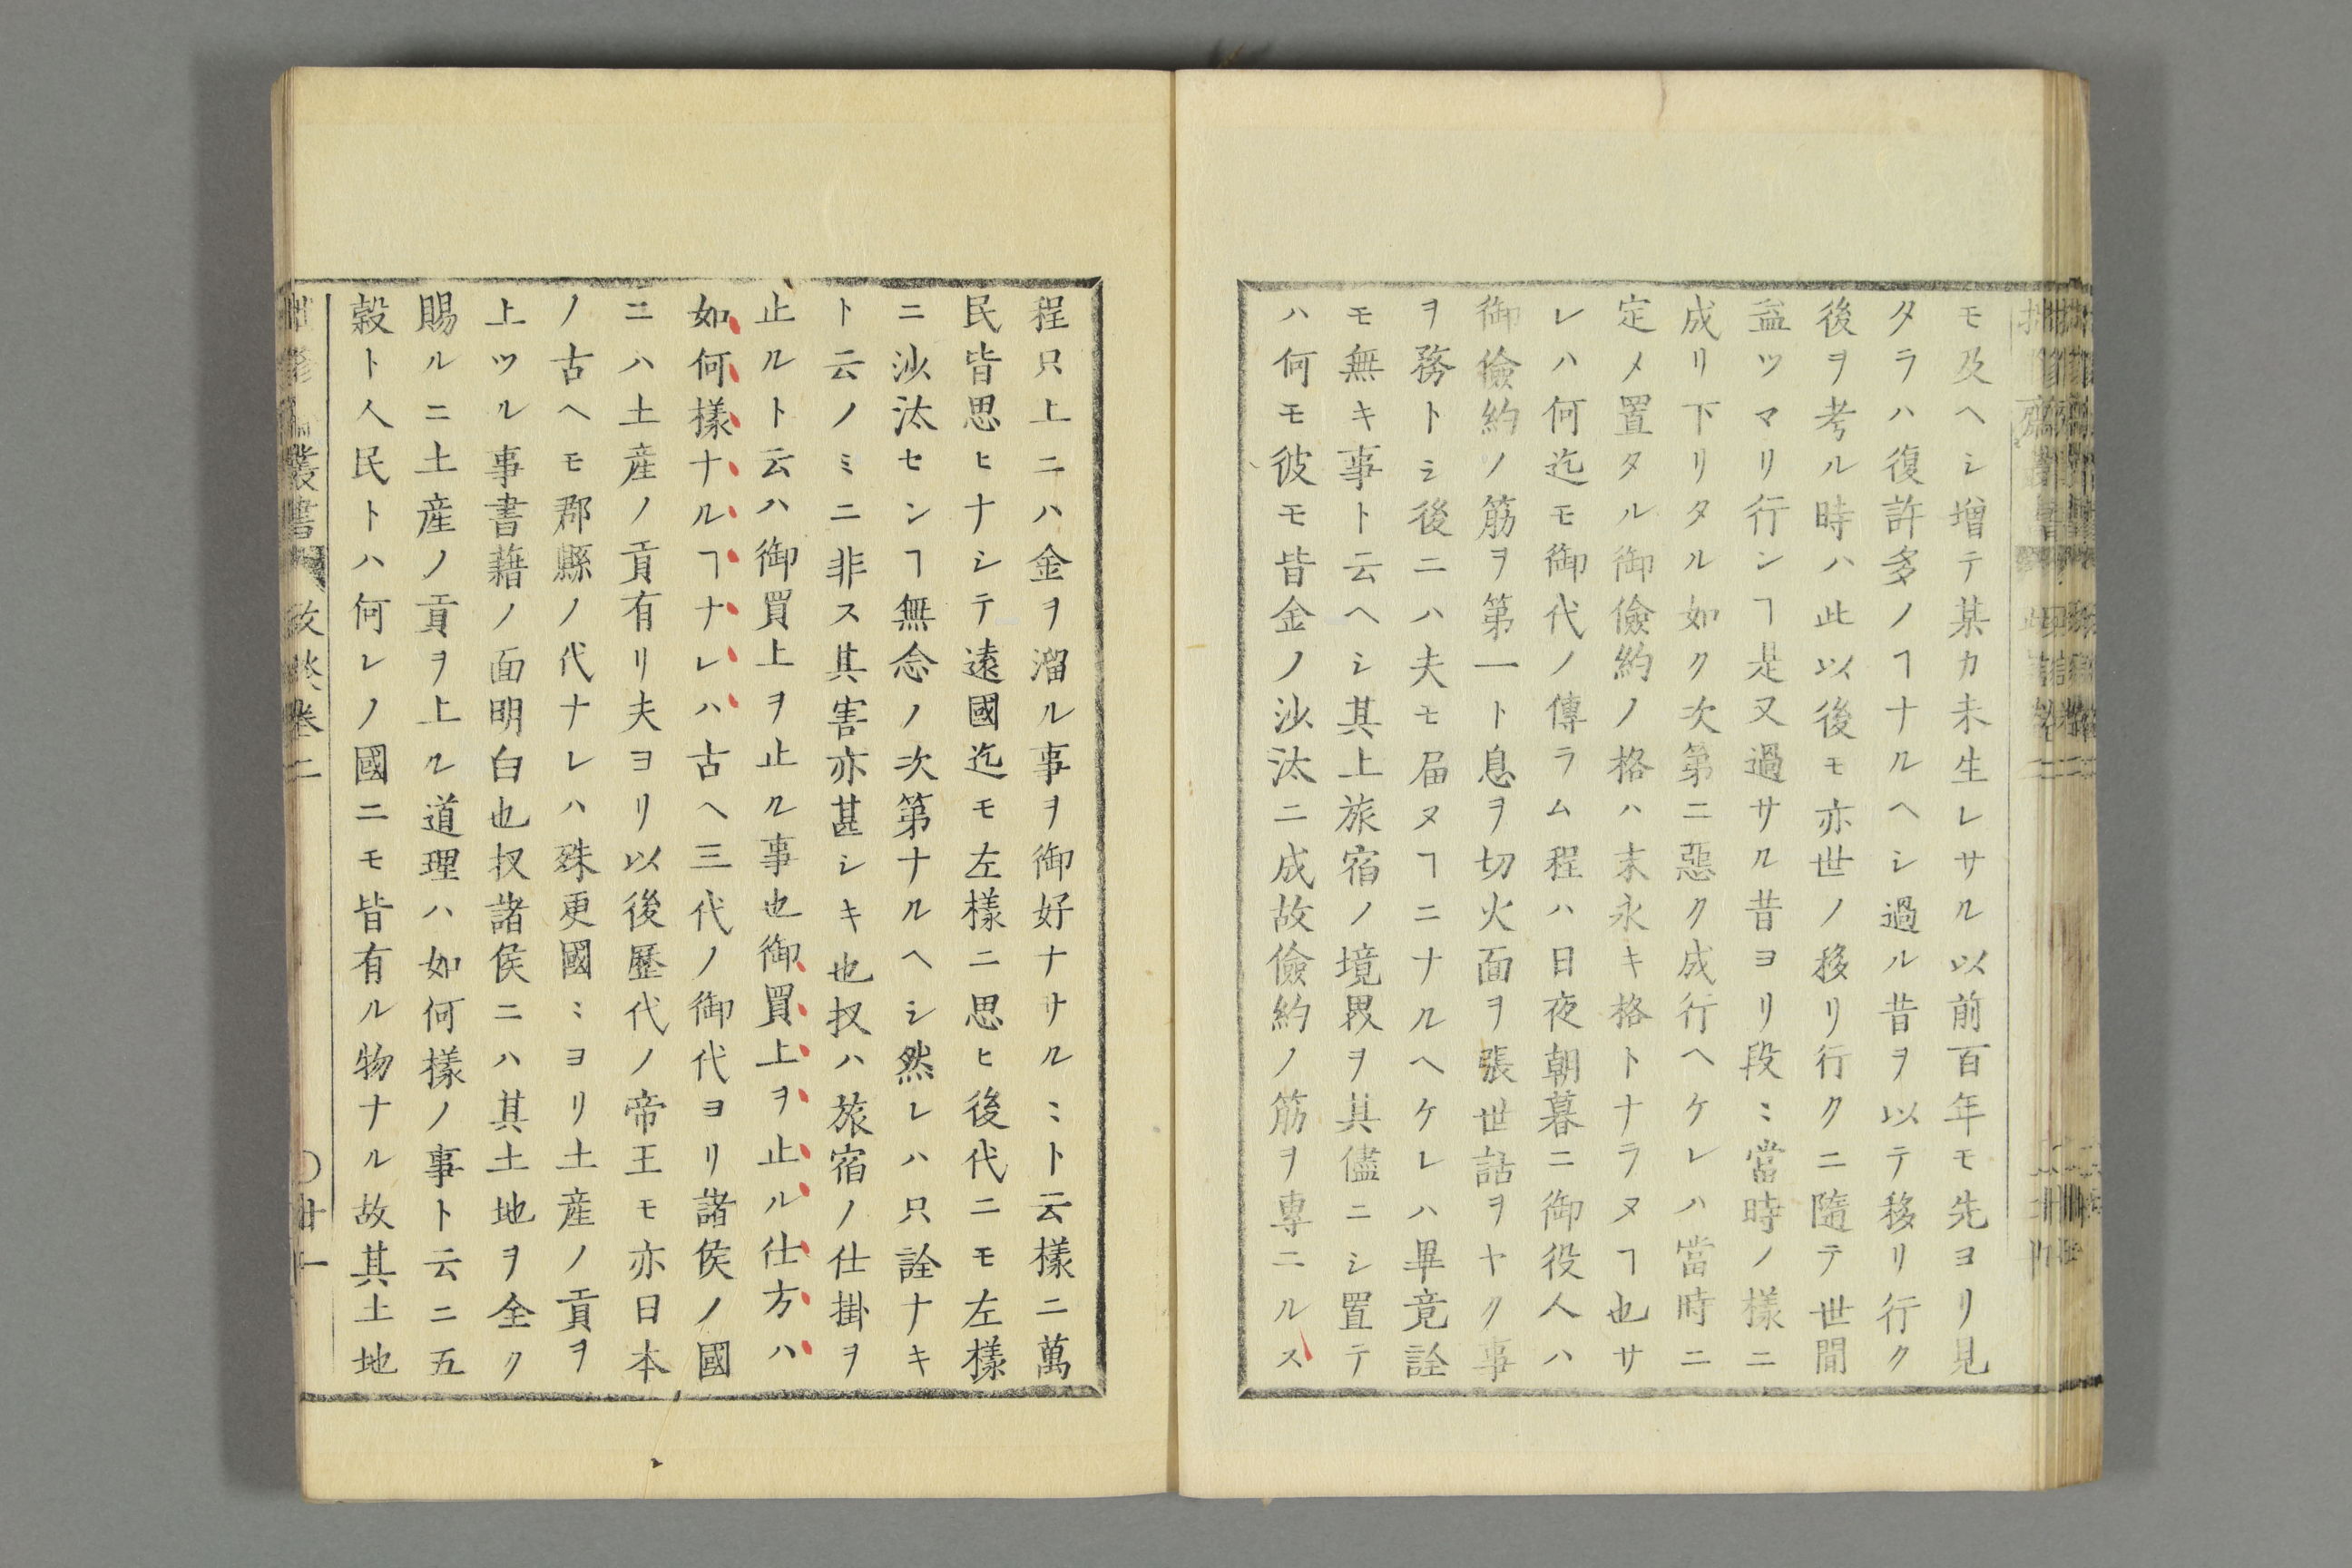 モ及ヘシ増テ某カ未生レサル以前百年モ先ヨリ見
タラハ復許多ノヿナルヘシ過ル昔ヲ以テ移リ行ク
後ヲ考ル時ハ此以後モ亦世ノ移リ行クニ隨テ世間
益ツマリ行ンヿ是又過サル昔ヨリ段〻當時ノ樣ニ
成リ下リタル如ク次第ニ惡ク成行ヘケレハ當時ニ
定メ置タル御儉約ノ格ハ末永キ格トナラヌヿ也サ
レハ何迄モ御代ノ傳ラム程ハ日夜朝暮ニ御役人ハ
御儉約ノ筋ヲ第一ト息ヲ切火面ヲ張世話ヲヤク事
ヲ務トシ後ニハ夫モ届ヌヿニナルヘケレハ畢竟詮
モ無キ事ト云ヘシ其上旅宿ノ境界ヲ其儘ニシ置テ
ハ何モ彼モ皆金ノ沙汰ニ成故儉約ノ筋ヲ專ニルス
程只上ニハ金ヲ溜ル事ヲ御好ナサルヽト云樣ニ萬
民皆思ヒナシテ遠國迄モ左樣ニ思ヒ後代ニモ左樣
ニ沙汰センヿ無念ノ次第ナルヘシ然レハ只詮ナキ
ト云ノミニ非ス其害亦甚シキ也扠ハ旅宿ノ仕掛ヲ
止ルト云ハ御買上ヲ止ル事也御買上ヲ止ル仕方ハ
如何樣ナルヿナレハ古ヘ三代ノ御代ヨリ諸侯ノ國
ニハ土産ノ貢有リ夫ヨリ以後歷代ノ帝王モ亦日本
ノ古ヘモ郡縣ノ代ナレハ殊更國〻ヨリ土産ノ貢ヲ
上ツル事書藉ノ面明白也扠諸侯ニハ其土地ヲ全ク
賜ルニ土産ノ貢ヲ上ル道理ハ如何樣ノ事ト云ニ五
穀ト人民トハ何レノ國ニモ皆有ル物ナル故其土地
叢書 政談卷二 〇廿一